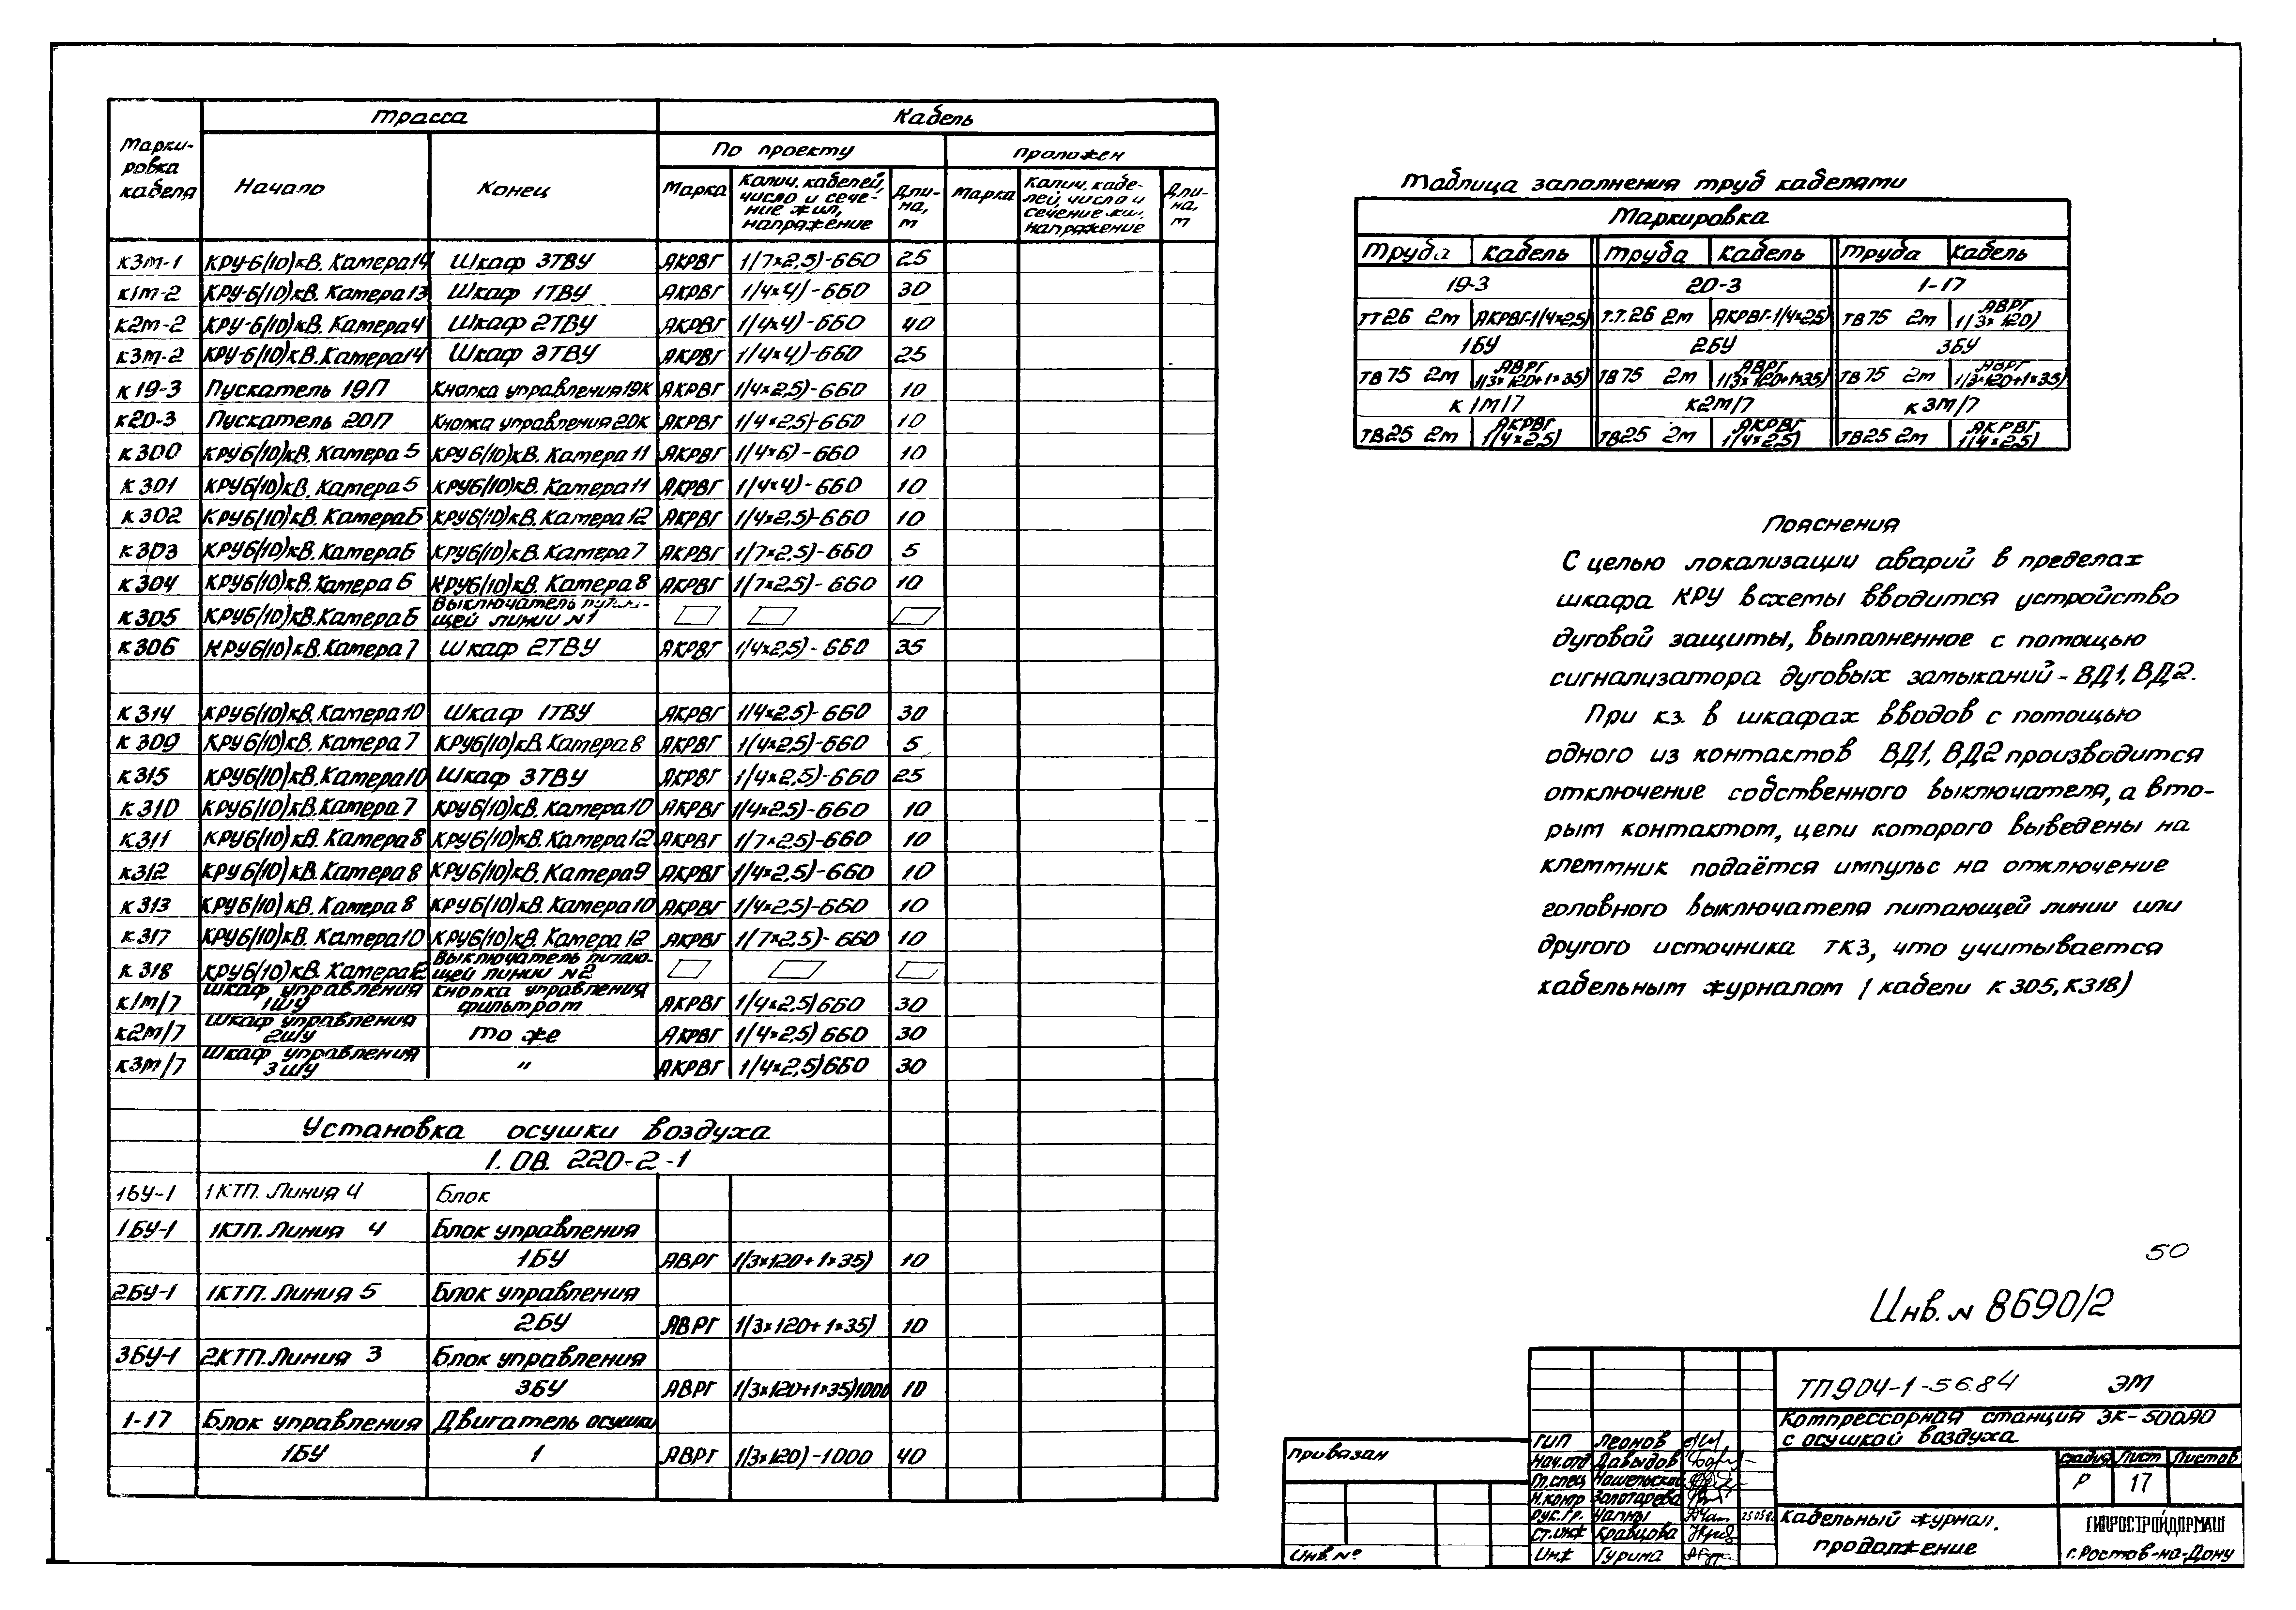 Марки-
ровка
кабеля
Трасса
Кабель
Начало
Конец
По проекту
проложен
Марка
Колич. кабелей,
число и сече-
ние жил,
напряжение
Дли-
на,
м
Марка
Колич. кабе-
лей, число и
сечение жил,
напряжение
Дли-
на,
м
к3т-1 КРУ-6(10)кВ. Камера 14 Шкаф 3ТВУ АКРВГ 1(7×2,5)-660 25
к1т-2 КРУ-6(10)кВ. Камера 13 Шкаф 1ТВУ АКРВГ 1(4×4)-660 30
к2т-2 КРУ-6(10)кВ. Камера 4 Шкаф 2ТВУ АКРВГ 1(4×4)-660 40
к3т-2 КРУ-6(10)кВ. Камера 14 Шкаф 3ТВУ АКРВГ 1(4×4)-660 25
к19-3 Пускатель 19П Кнопка управления 19К АКРВГ 1(4×2,5)-660 10
к20-3 Пускатель 20П Кнопка управления 20К АКРВГ 1(4×2,5)-660 10
к300 КРУ6(10)кВ. Камера 5 КРУ6(10)кВ. Камера 11 АКРВГ 1(4×6)-660 10
к301 КРУ6(10)кВ. Камера 5 КРУ6(10)кВ. Камера 11 АКРВГ 1(4×4)-660 10
к302 КРУ6(10)кВ. Камера 6 КРУ6(10)кВ. Камера 12 АКРВГ 1(4×2,5)-660 10
к303 КРУ6(10)кВ. Камера 6 КРУ6(10)кВ. Камера 7 АКРВГ 1(7×2,5)-660 5
к304 КРУ6(10)кВ. Камера 6 КРУ6(10)кВ. Камера 8 АКРВГ 1(7×2,5)-660 10
к305 КРУ6(10)кВ. Камера 6 Выключатель питаю-
щей линии №1
к306 КРУ6(10)кВ. Камера 7 Шкаф 2ТВУ АКРВГ 1(4×2,5)-660 35
к314 КРУ6(10)кВ. Камера 10 Шкаф 1ТВУ АКРВГ 1(4×2,5)-660 30
к309 КРУ6(10)кВ. Камера 7 КРУ6(10)кВ. Камера 8 АКРВГ 1(4×2,5)-660 5
к315 КРУ6(10)кВ. Камера 10 Шкаф 3ТВУ АКРВГ 1(4×2,5)-660 25
к310 КРУ6(10)кВ. Камера 7 КРУ6(10)кВ. Камера 10 АКРВГ 1(4×2,5)-660 10
к311 КРУ6(10)кВ. Камера 8 КРУ6(10)кВ. Камера 12 АКРВГ 1(7×2,5)-660 10
к312 КРУ6(10)кВ. Камера 8 КРУ6(10)кВ. Камера 9 АКРВГ 1(4×2,5)-660 10
к313 КРУ6(10)кВ. Камера 8 КРУ6(10)кВ. Камера 10 АКРВГ 1(4×2,5)-660 10
к317 КРУ6(10)кВ. Камера 10 КРУ6(10)кВ. Камера 12 АКРВГ 1(7×2,5)-660 10
к318 КРУ6(10)кВ. Камера 12 Выключатель питаю-
щей линии №2
к1т/7 Шкаф управления
1ШУ Кнопка управления
фильтром АКРВГ 1(4×2,5)660 30
к2т/7 Шкаф управления
2ШУ то же АКРВГ 1(4×2,5)660 30
к3т/7 Шкаф управления
3ШУ " АКРВГ 1(4×2,5)660 30
Установка осушки воздуха
1. ОВ. 220-2-1
1БУ-1 1КТП. Линия 4 Блок
1БУ-1 1КТП. Линия 4 Блок управления
1БУ АВРГ 1(3×120+1×35) 10
2БУ-1 1КТП. Линия 5 Блок управления
2БУ АВРГ 1(3×120+1×35) 10
3БУ-1 2КТП. Линия 3 Блок управления
3БУ АВРГ 1(3×120+1×35)1000 10
1-17 Блок управления Двигатель осушки
1БУ 1 АВРГ 1(3×120)-1000 40
Таблица заполнения труб кабелями
Маркировка
Труба Кабель Труба Кабель Труба Кабель
19-3 20-3 1-17
ТТ26 2м АКРВГ-1(4×2,5) Т.Т.26 2м АКРВГ-1(4×2,5) ТВ75 2м АВРГ
1(3×120)
1БУ 2БУ 3БУ
ТВ75 2м АВРГ
1(3×120+1×35) ТВ75 2м АВРГ
1(3×120+1×35) ТВ75 2м АВРГ
1(3×120+1×35)
к1М/7 к2М/7 к3М/7
ТВ25 2м АКРВГ
1(4×2,5) ТВ25 2м АКРВГ
1(4×2,5) ТВ25 2м АКРВГ
1(4×2,5)
Пояснения
С целью локализации аварий в пределах
шкафа КРУ в схемы вводится устройство
дуговой защиты, выполненное с помощью
сигнализатора дуговых замыканий - ВД1, ВД2.
При кз. в шкафах вводов с помощью
одного из контактов ВД1, ВД2 производится
отключение собственного выключателя, а вто-
рым контактом, цепи которого выведены на
клеммник подаётся импульс на отключение
головного выключателя питающей линии или
другого источника ТКЗ, что учитывается
кабельным журналом (кабели к305, к318)
50
Инв. № 8690/2
ТП904-1-56.84 ЭМ
Компрессорная станция 3К-500АО
с осушкой воздуха
стадия Лист Листов
Р 17
Кабельный журнал.
продолжение
ГИПРОСТРОЙДОРМАШ
г. Ростов-на-Дону
ГИП Леонов
Нач.отд Давыдов
Гл.спец
Н.контр Золотарева
Рук.гр. Чапны
Ст.инж Кравцова
Инж Гурина
привязан
Инв.№